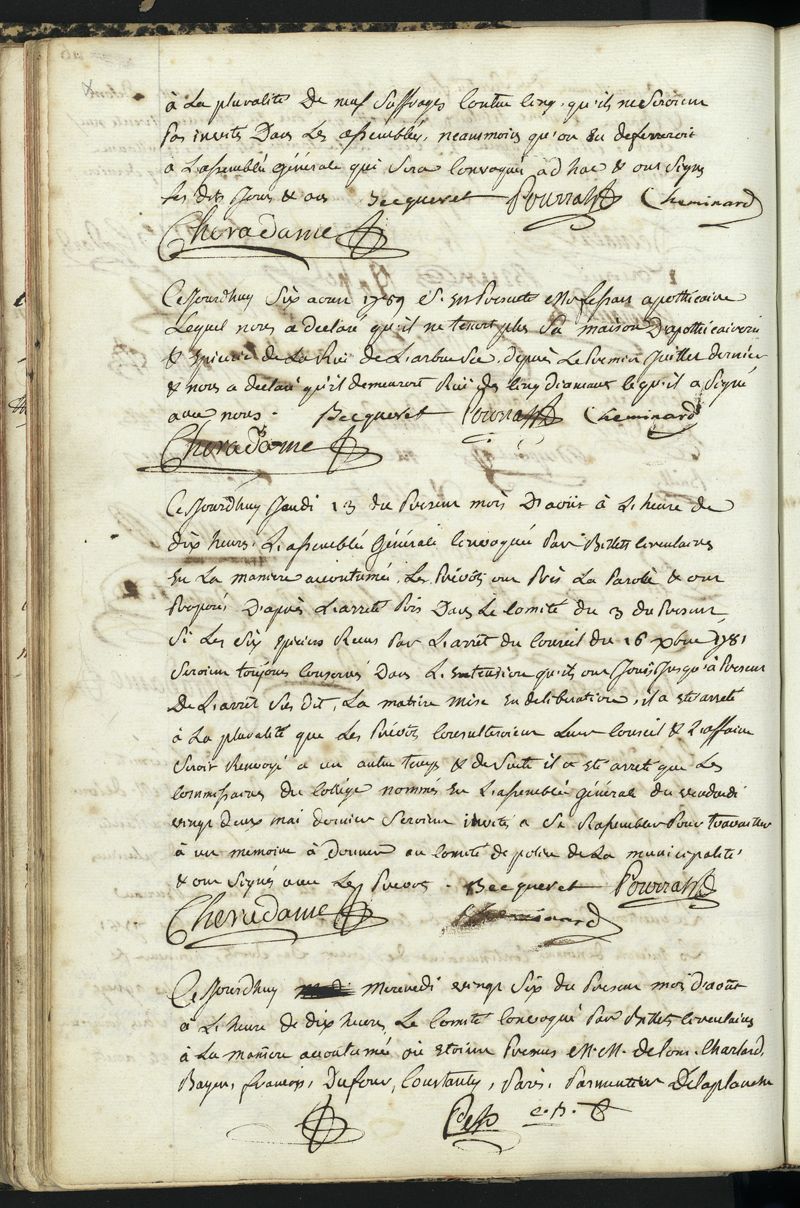 à La pluralité De neuf Suffrages Contre Cinq, qu'ils ne Seroient
Pas invités Dans Les assemblés, neanmoins qu'on En defereroit
a L'assemblé générale qui Sera Convoquée ad hac & ont Signé
Les dits Jours & an Becqueret Pourrat Cheminard
Cheradame
Ce Jourdhuy Six aoust 1789 Est Présenté Mr apothicaire
Lequel nous a declaré qu'il ne tenoit plus Sa maison D'apothicairerie
& Epicerie de La Rue de L'arbre Sec, depuis Le Premier Juillet dernier
& nous a declaré qu'il demeuroit Rue des Cinq diamans Ce qu'il a Signé
avec nous. Becqueret Pourrat Cheminard
Cheradame
Ce Jourdhuy Jeudi 13 du Present mois D'aoust à L'heure de
dix heures, L'assemblée Générale Convoquée Par Billets Circulaires
En La maniere accoutumée, Les Prévôts ont Pris La Parole & ont
Proposé D'après L'arreté Pris Dans Le Comité du 3 du Present,
Si Les Six Epiciers Reçus Par L'arrêt du Conseil du 16 Xbre 1781
Seroient toujours Conservés Dans L'Extension qu'ils ont Joui Jusqu'à Present
De L'arrêt Sus Dit, La matiere mise En deliberation, il a Eté arreté
à La pluralité que Les Prévôts Consulteroient Leur Conseil & L'affaire
Seroit Renvoyé a un autre temps & de Suite il a Eté arreté que Les
Commissaires du Collége nommés En L'assemblée général du Vendredi
vingt deux mai dernier Seroient invités a Se Rassembler Pour travailler
à un mémoire à Donner au Comité de police de La municipalité
& ont Signés avec Les Prévots. Becqueret Pourrat
Cheradame Cheminard
Ce Jourdhuy Mercredi vingt Six du Present mois d'aoust
à L'heure de dix heures, Le Comité Convoqué Par Billets Circulaires
à La maniere accoutumée où Etoient Presens M.M. Delons, Charlard,
Bayen, François, Dufour, Coustanty, Paris, Parmentier Delaplanche